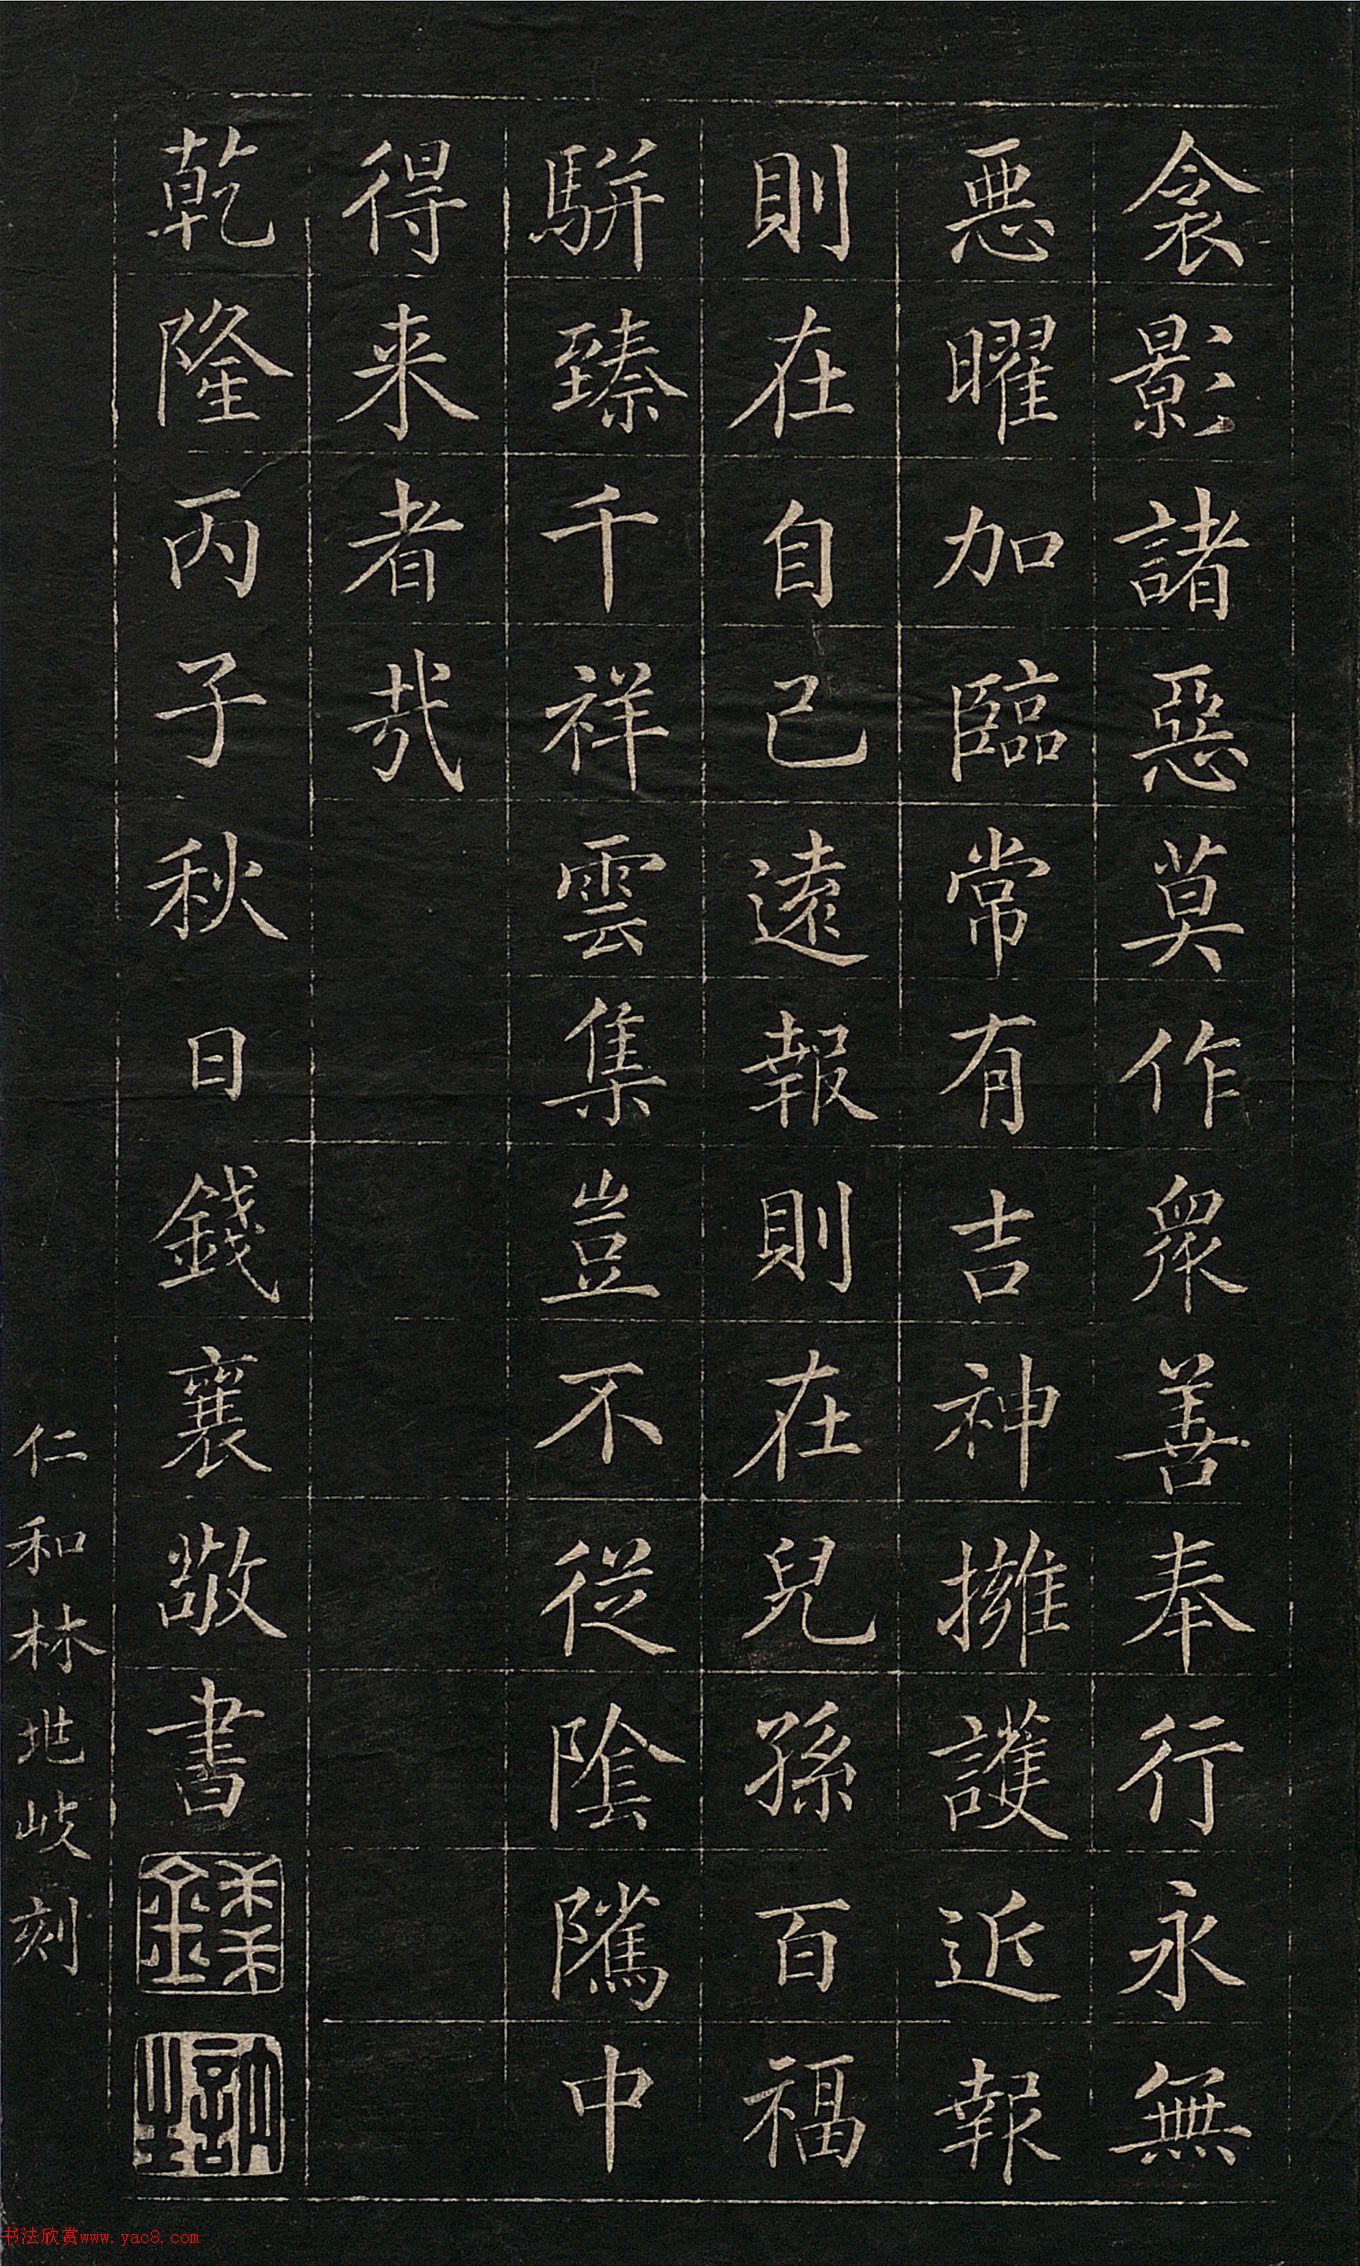 衾影諸惡莫作眾善奉行永無
惡曜加臨常有吉神擁護近報
則在自己遠報則在兒孫百福
駢臻千祥雲集豈不從陰隲中
得来者哉
乾隆丙子秋日錢襄敬書
仁和林兆岐刻
书法欣赏www.yac8.com